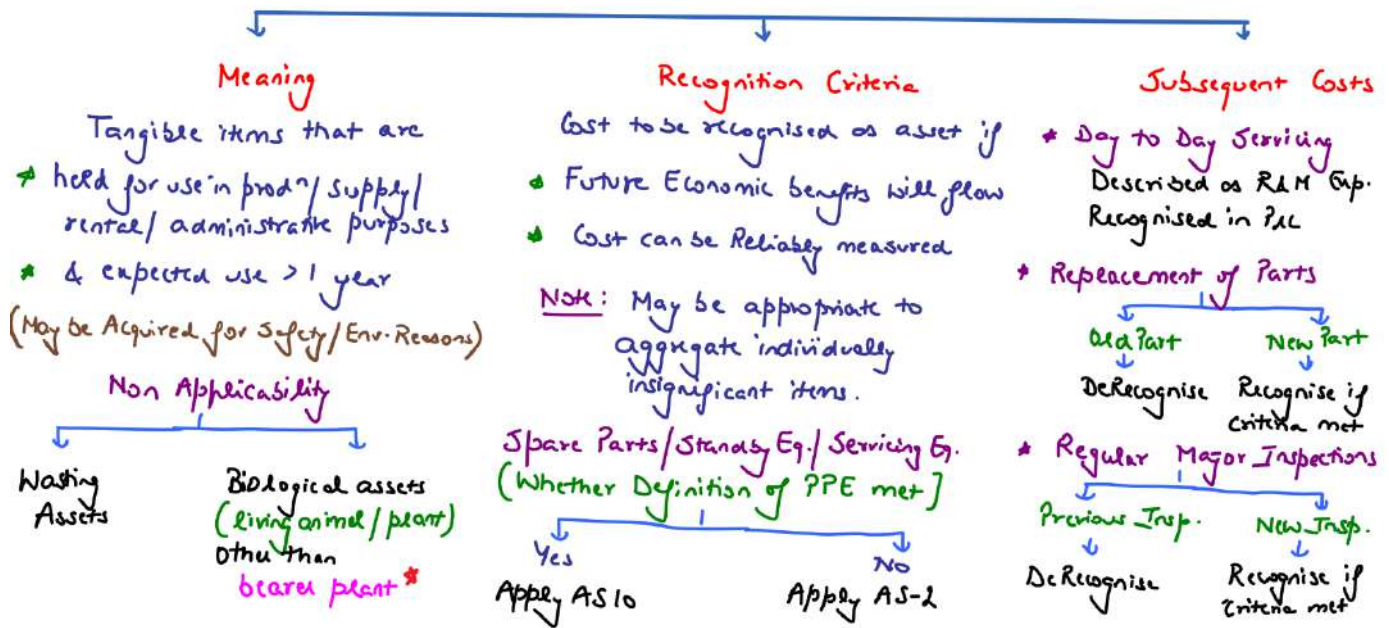 Meaning
Tangible items that are
* held for use in prodⁿ/ supply/
rental/ administrative purposes
* & expected use >1 year
(May be Acquired for Safety/Env. Reasons)
Non Applicability
Wasting
Assets
Biological assets
(living animal/plant)
Other than
bearer plant *
Recognition Criteria
Cost to be recognised as asset if
* Future Economic benefits will flow
* Cost can be Reliably measured
Note: May be appropriate to
aggregate individually
insignificant items.
Spare Parts/Standby Eq./Servicing Eq.
(Whether Definition of PPE met)
Yes No
Apply AS10 Apply AS-2
Subsequent Costs
* Day to Day Servicing
Described as R&M Exp.
Recognised in P&L
* Replacement of Parts
Old Part New Part
DeRecognise Recognise if
criteria met
* Regular Major Inspections
Previous Insp. New Insp.
DeRecognise Recognise if
Criteria met